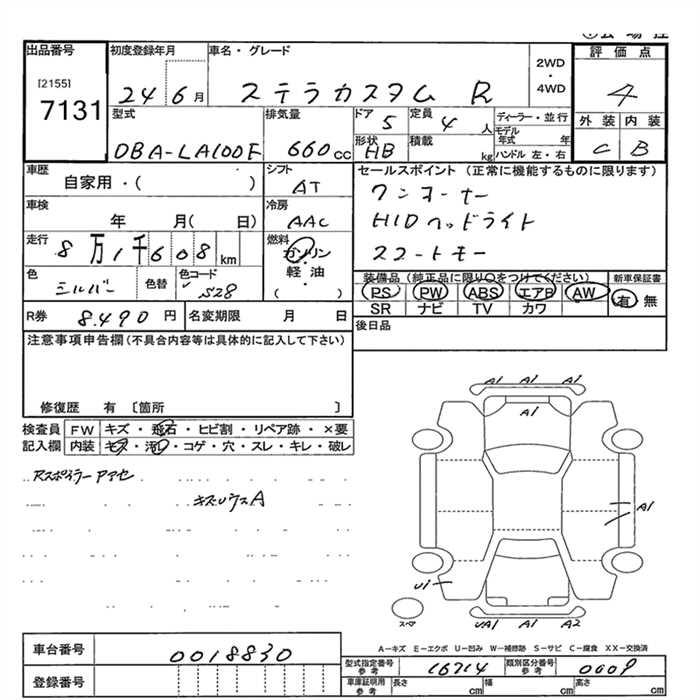 出品番号
[2155]
7131
初度登録年月
24 6月
車名・グレード
ステラカスタム R
2WD
・
4WD
評価点
4
外装 内装
C B
型式
DBA-LA100F
排気量
660cc
ドア 5
形状 HB
定員 4 人
積載 kg
ディーラー・並行
モデル年式 年
ハンドル 左・右
車歴
自家用・( )
シフト
AT
車検
年 月( 日)
冷房
AAC
走行
8万1千608km
燃料
ガソリン
・
軽油
・
( )
色
シルバー
色替
色コード
S28
R券 8.490円
名変期限 月 日
セールスポイント (正常に機能するものに限ります)
ワンオーナー
HIDヘッドライト
スマートキー
装備品(純正品に限り○をつけてください)
PS PW ABS エアB AW
SR ナビ TV カワ
新車保証書
有 無
後日品
注意事項申告欄(不具合内容等は具体的に記入して下さい)
修復歴 有 〔箇所 〕
検査員記入欄
FW キズ・飛石・ヒビ割・リペア跡・×要
内装 キズ・汚レ・コゲ・穴・スレ・キレ・破レ
Rスポイラーアマセ
キズ小ウスA
A1 A1 A1
A1
A1
U1
UA1 A1 A2
スペア
A-キズ E-エクボ U-凹み W-補修跡 S-サビ C-腐食 XX-交換済
車台番号
0018830
登録番号
型式指定番号
参考
16714
類別区分番号
参考
0009
車庫証明用
参考
長さ cm
幅 cm
高さ cm